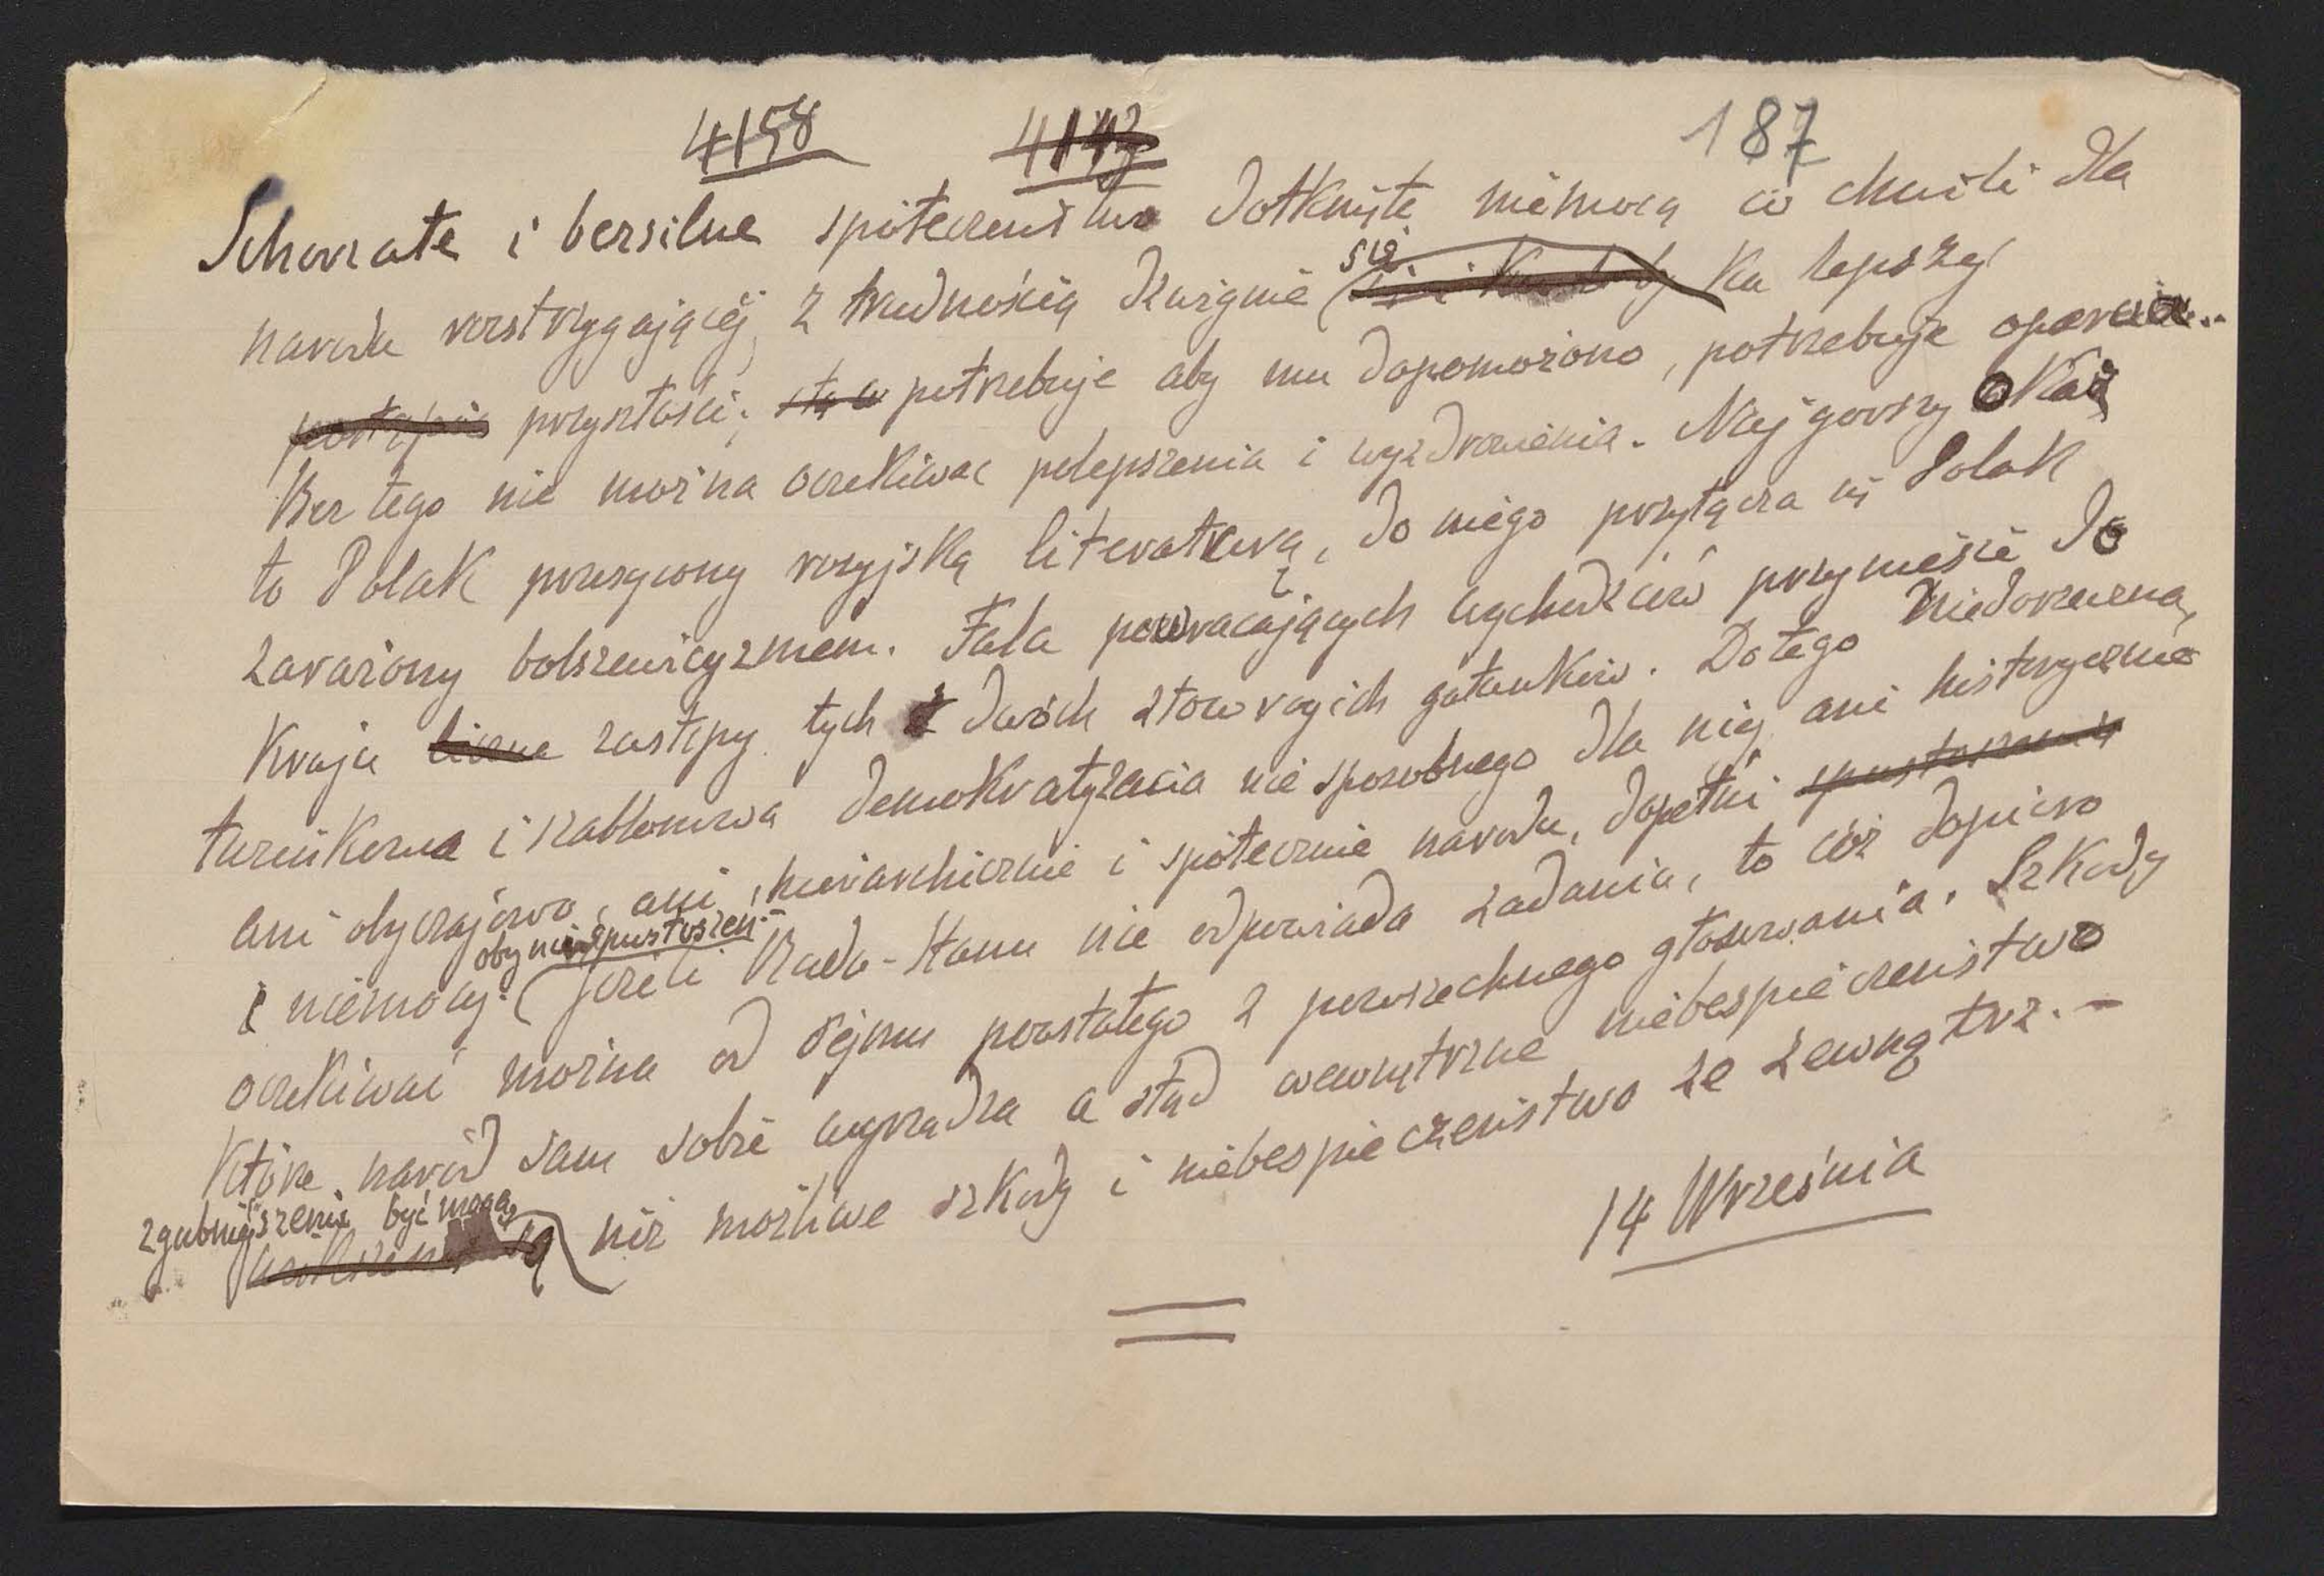 4158 4142 187
Schorzałe i bezsilne społeczeństwo dotknięte niemocą w chwili dla
narodu rozstrzygającej, z trudnością dźwignie się ku lepszej
przyszłości; potrzebuje aby mu dopomożono, potrzebuje oparcia..
Bez tego nie można oczekiwać polepszenia i wyzdrowienia. Najgorszy okaz
to Polak przesycony rosyjską literaturą, do niego przyłącza się Polak
zarażony bolszewicyzmem. Fala powracających wychodźców przyniesie do
Kraju liczne zastępy tych dwóch złowrogich gatunków. Do tego niedorzeczna,
i szablonowa demokratyzacia nie sposobnego dla niej ani historycznie
ani obyczajowo, ani hierarchicznie i społecznie narodu, dopełni spustoszenia
i niemocy. (oby nie spustoszeń.–
Jeżeli Rada-Stanu nie odpowiada zadaniu, to cóż dopiero
oczekiwać można od Sejmu powstałego z powszechnego głosowania. Szkody
Które naród sam sobie wyrządza a stąd wewnętrzne niebespieczeństwo
zgubniejszemi być mogą
są niż możliwe szkody i niebespieczeństwo ze zewnątrz. –
14 Września